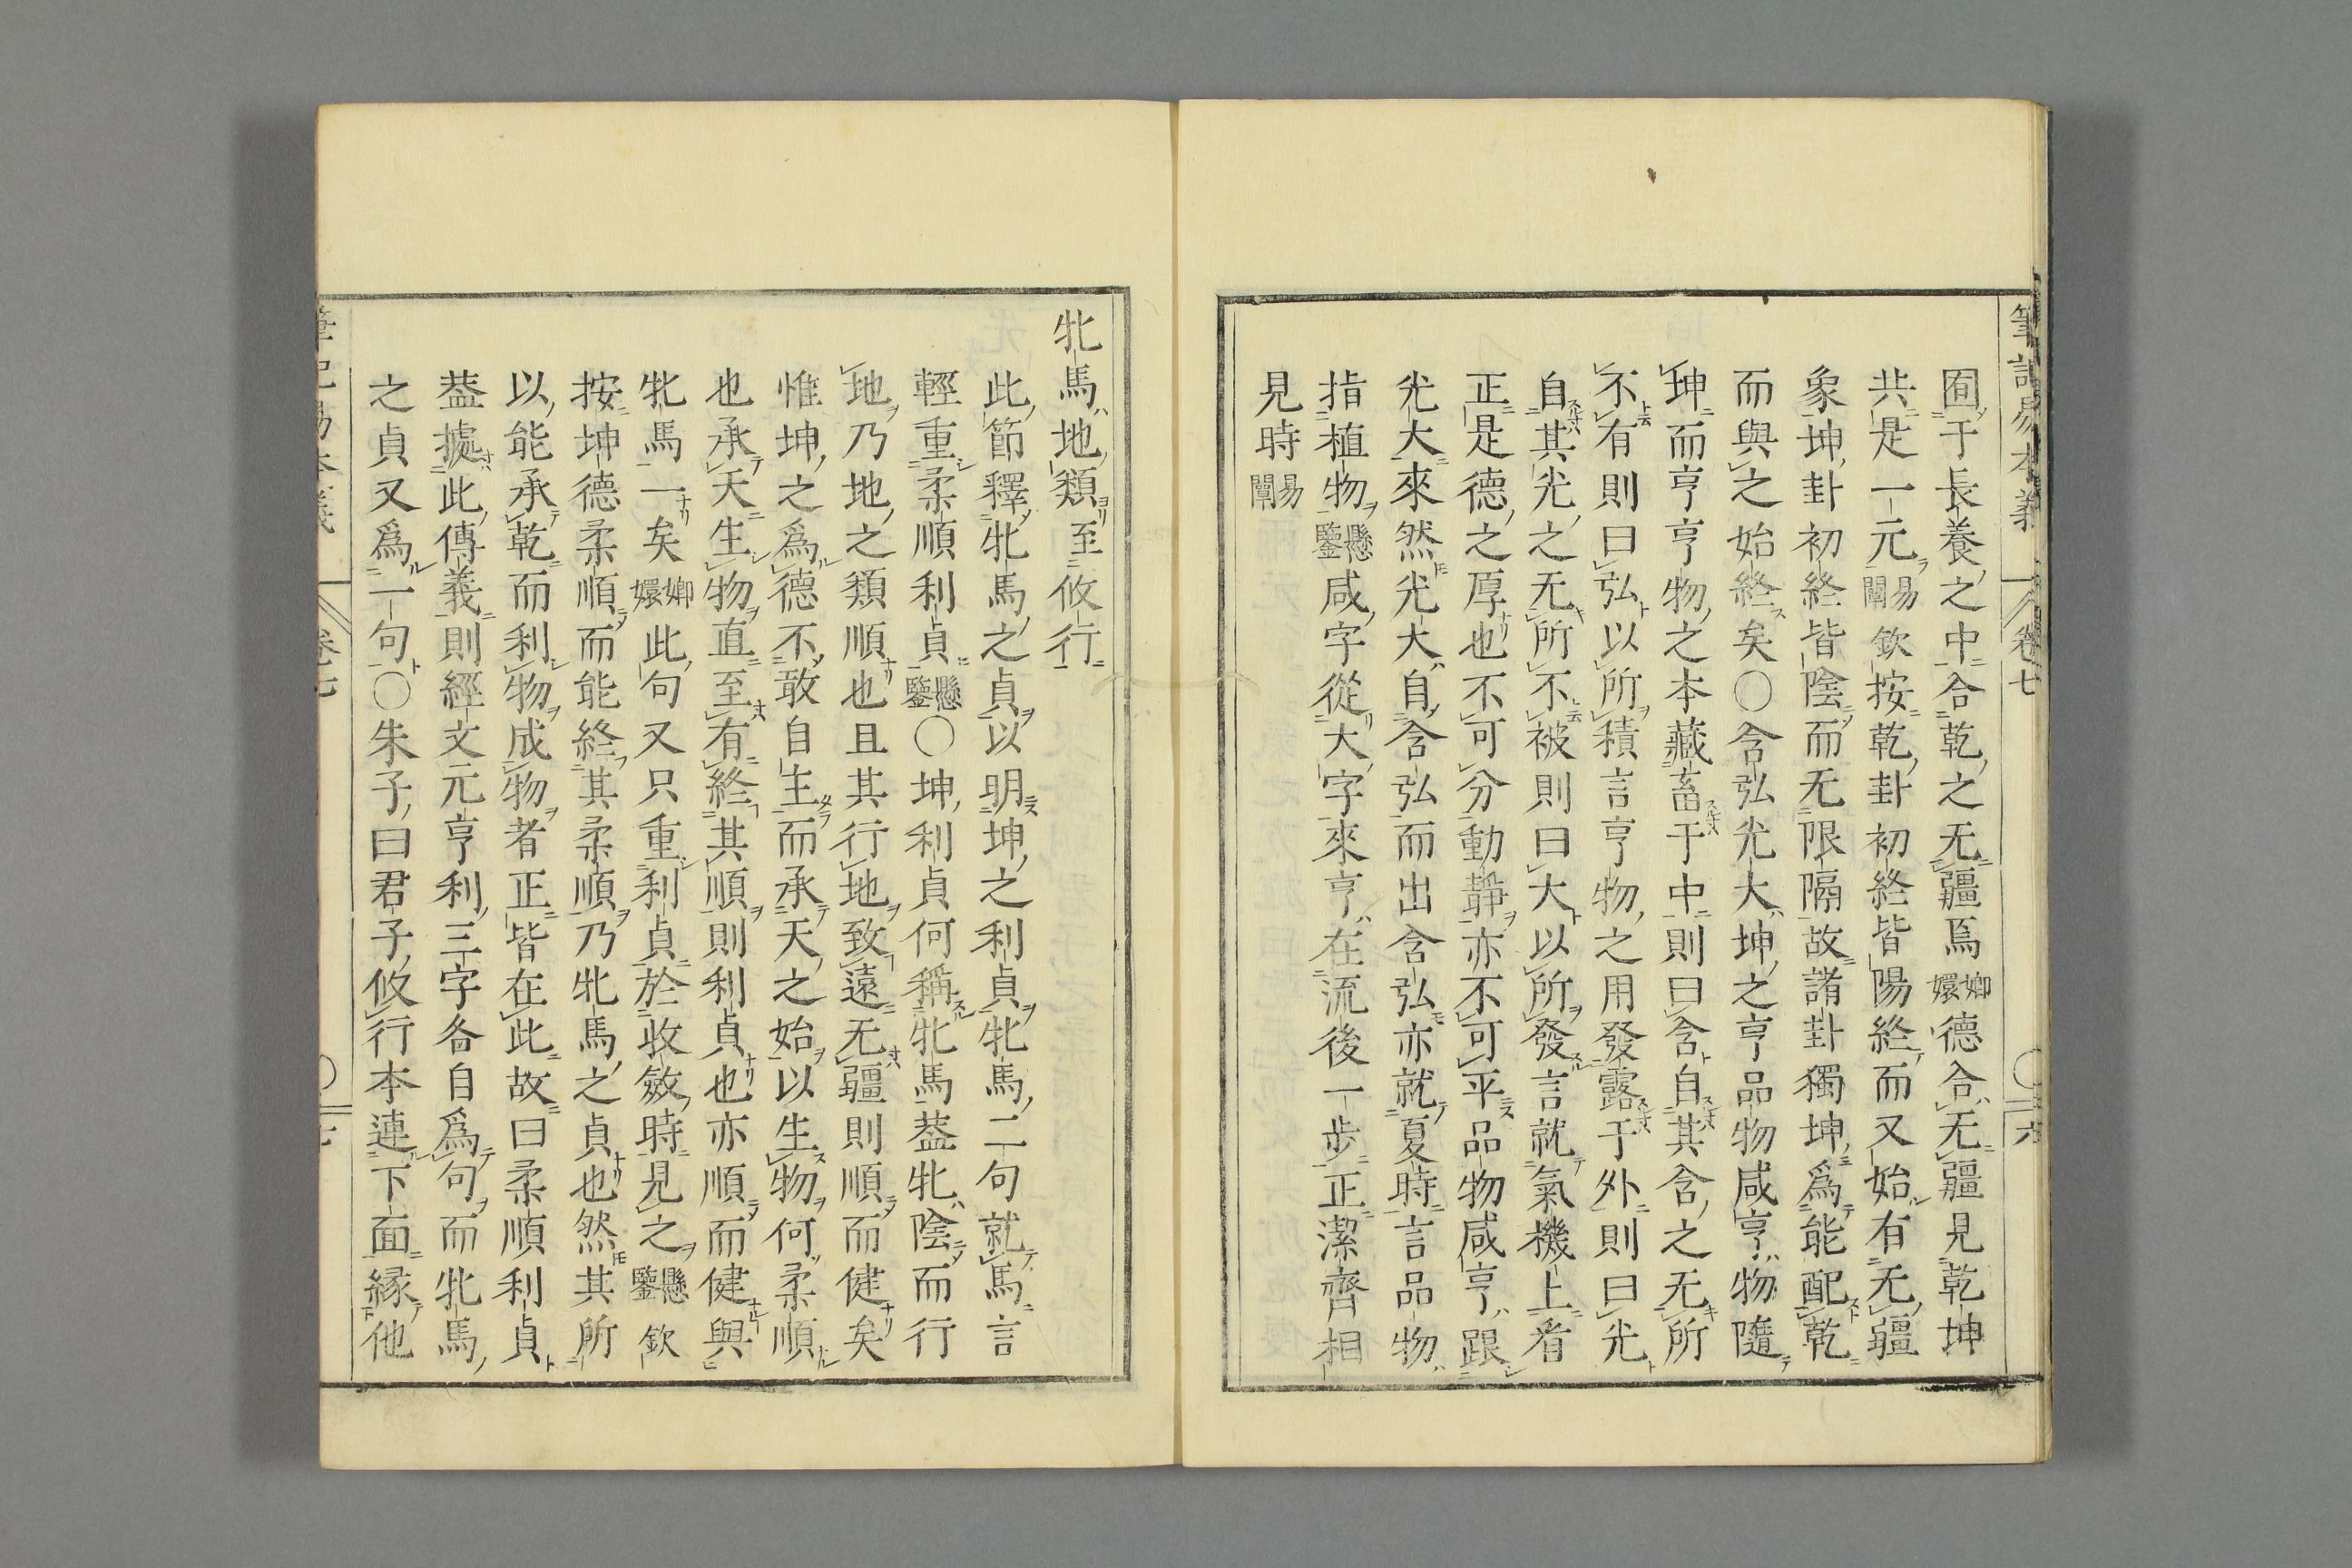 筆記易本義 卷七 六
囿于長養之中合乾之无疆焉嫏嬛德合无疆見乾坤
共是一元易闡欽按乾卦初終皆陽終而又始有无疆
象坤卦初終皆陰而无限隔故諸卦獨坤爲能配乾
而與之始終矣〇含弘光大坤之亨品物咸亨物隨
坤而亨亨物之本藏畜于中則曰含自其含之无所
不有則曰弘以所積言亨物之用發露于外則曰光
自其光之无所不被則曰大以所發言就氣機上看
正是德之厚也不可分動靜亦不可平品物咸亨跟
光大來然光大自含弘而出含弘亦就夏時言品物
指植物懸鑒咸字從大字來亨在流後一步正潔齊相
見時易闡
牝馬地類至攸行
此節釋牝馬之貞以明坤之利貞牝馬二句就馬言
輕重柔順利貞懸鑒〇坤利貞何稱牝馬葢牝陰而行
地乃地之類順也且其行地致遠无疆則順而健矣
惟坤之爲德不敢自主而承天之始以生物何柔順
也承天生物直至有終其順則利貞也亦順而健與
牝馬一矣嫏嬛此句又只重利貞於收斂時見之懸鑒欽
按坤德柔順而能終其柔順乃牝馬之貞也然其所
以能承乾而利物成物者正皆在此故曰柔順利貞
葢據此傳義則經文元亨利三字各自爲句而牝馬
之貞又爲一句〇朱子曰君子攸行本連下面緣他
筆記易本義 卷七 七